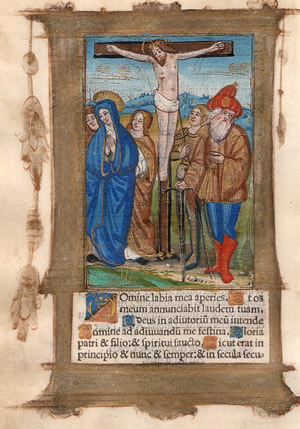 Domine labia mea aperies. Et os
meum annunciabit laudem tuam.
Deus in adiutoriū meū intende
Domine ad adiuuandū me festina. Gloria
patri & filio: & spiritui sancto Sicut erat in
principio & nunc & semper: & in secula secu